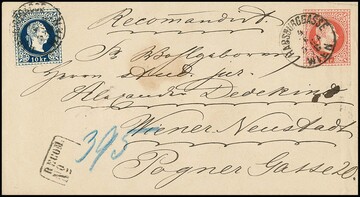 Recomandirt.
10 kr.
HABSBURGGASSE
WIEN
Sr Wohlgeboren
Herrn stud. jur.
Alexander Dedekind
Wiener Neustadt
Pogner Gasse 20.
RECOM.
No
395